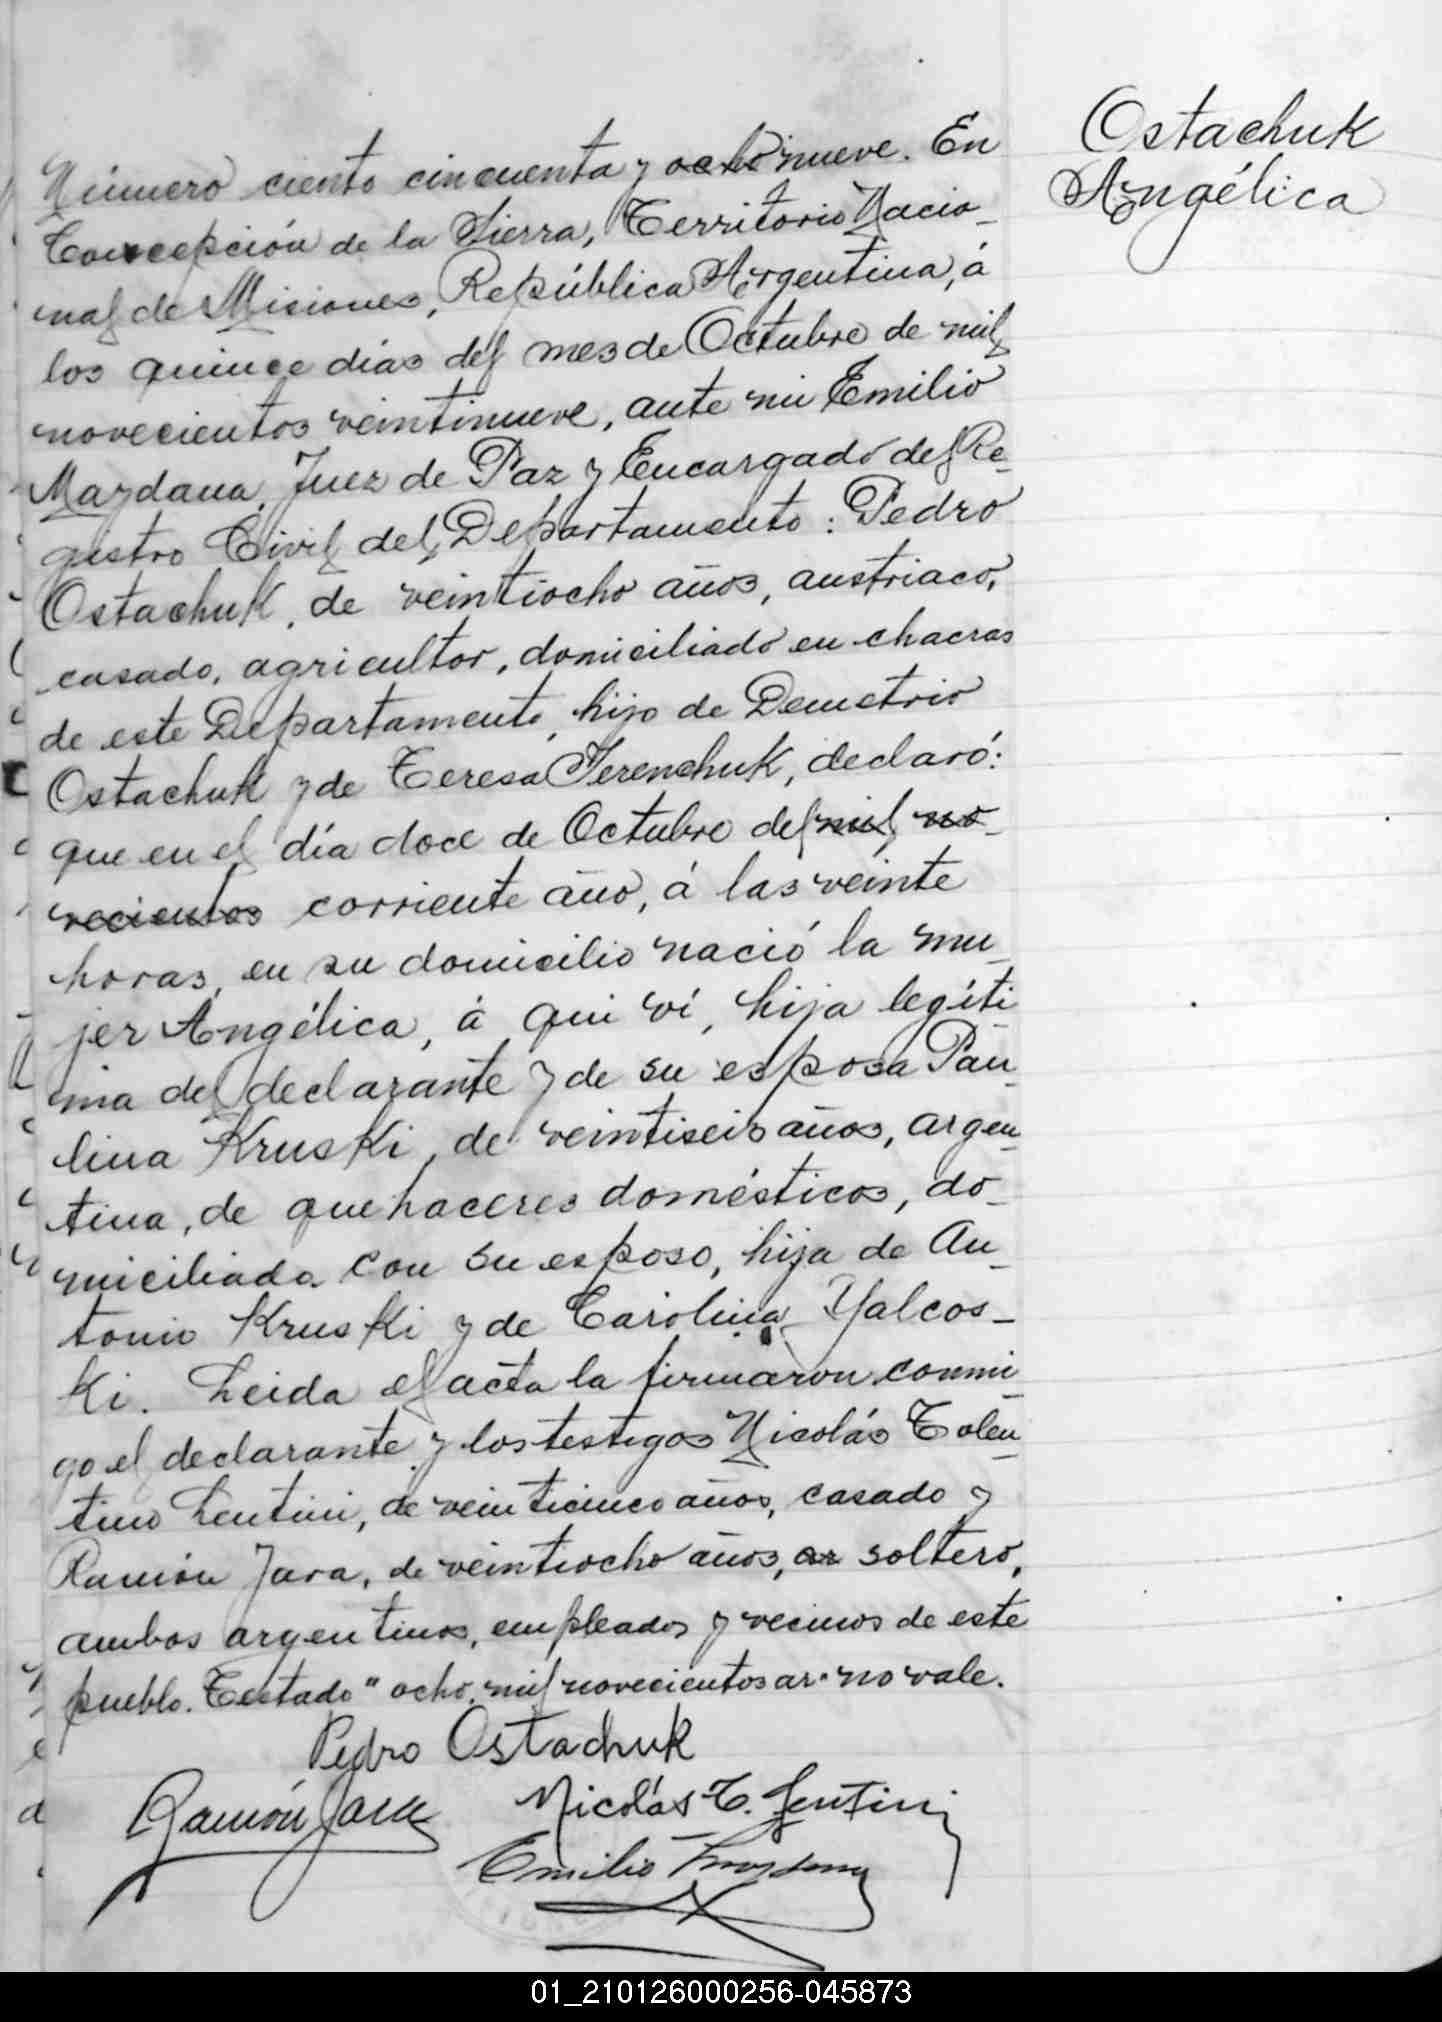 Ostachuk
Angélica
Número ciento cincuenta y ocho nueve. En
Concepción de la Sierra, Territorio Nacio-
nal de Misiones, República Argentina, á
los quince días del mes de Octubre de mil
novecientos veintinueve, ante mi Emilio
Maydana, Juez de Paz y Encargado del Re-
gistro Civil del Departamento: Pedro
Ostachuk, de veintiocho años, austriaco,
casado, agricultor, domiciliado en chacras
de este Departamento, hijo de Demetrio
Ostachuk y de Teresa Ferenchuk, declaró:
que en el día doce de Octubre del mil no-
vecientos corriente año, á las veinte
horas, en su domicilio nació la mu-
jer Angélica, á qui ví, hija legíti-
ma del declarante y de su esposa Pau-
lina Kruski, de veintiseis años, argen-
tina, de quehaceres domésticos, do-
miciliada con su esposo, hija de An-
tonio Kruski y de Carolina Yalcos-
ki. Leida el acta la firmaron conmi-
go el declarante y los testigos Nicolás Tolen-
tino Lentini, de veinticinco años, casado y
Ramón Jara, de veintiocho años, ar soltero,
ambos argentinos, empleados y vecinos de este
pueblo. Testado "ocho. mil novecientos ar" no vale.
Pedro Ostachuk
Ramón Jara Nicolás T. Lentini
Emilio Maydana
01_210126000256-045873